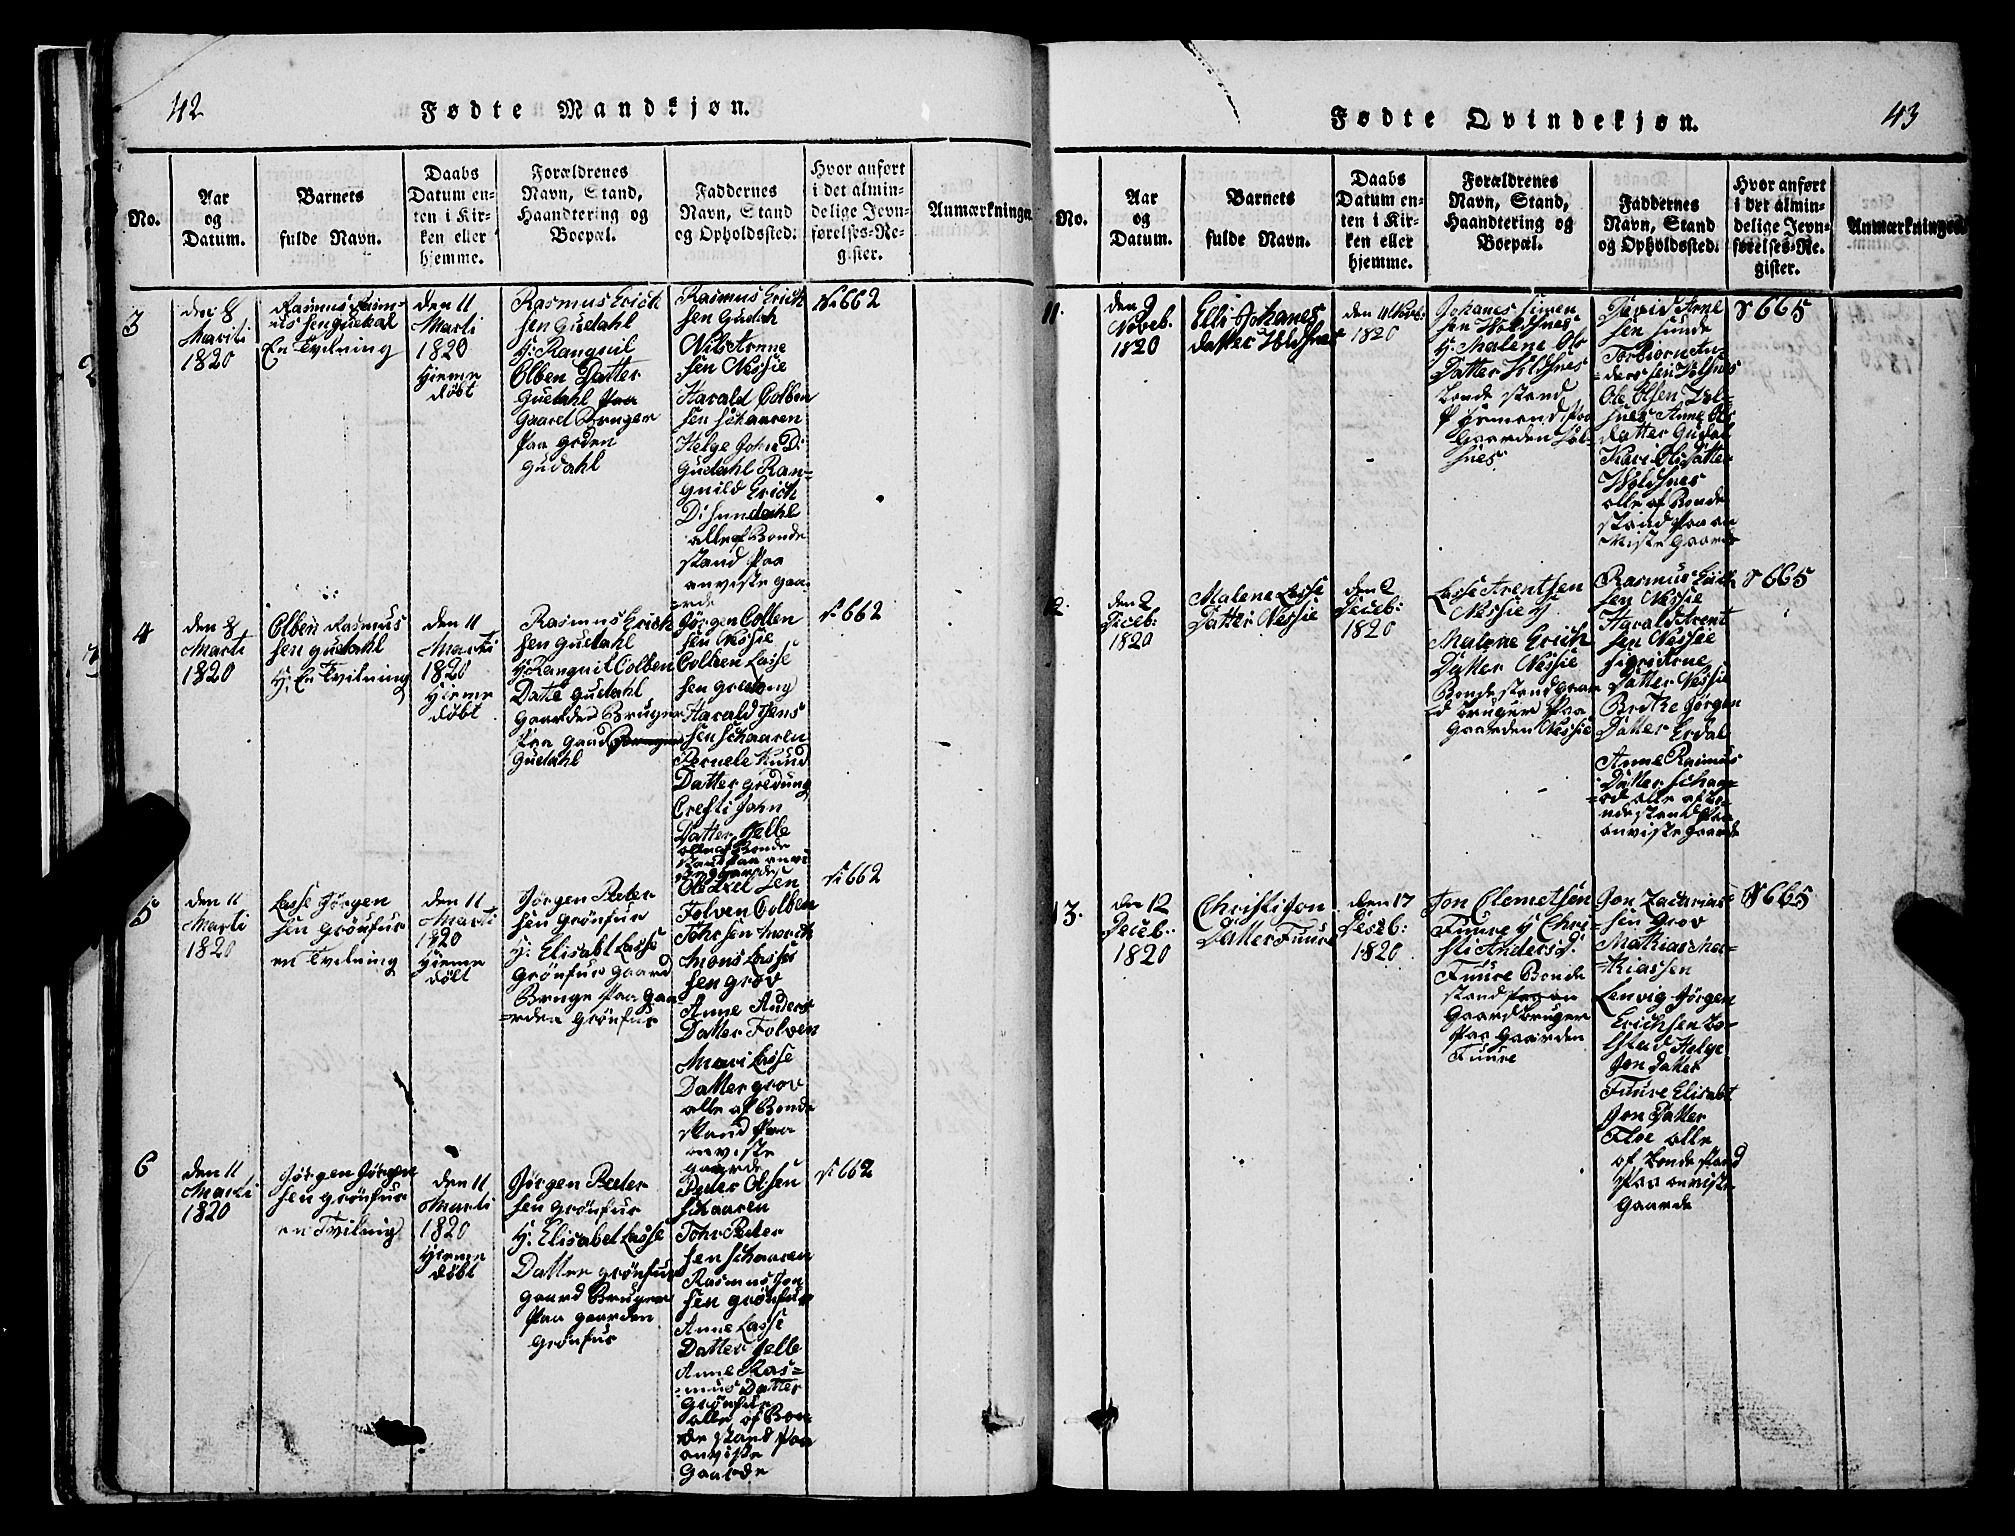 42
Fødte Mandkjøn.
No.
Aar
og
Datum.
Barnets
fulde Navn.
Daabs
Datum en-
ten i Kir-
ken eller
hjemme.
Forældrenes
Navn, Stand,
Haandtering og
Boepæl.
Faddernes
Navn, Stand
og Opholdssted.
Hvor anført
i det almin-
delige Jevn-
førelses-Re-
gister.
Anmærkninger
3
den 8
Marti
1820
Rasmus Rasm-
us sen gudahl
En Tvilning
den 11
Marti
1820
Hieme
døbt
Rasmus Erich
sen Gudahl
H: Ranguil
Olben Datter
Gudahl Paa
Gaard Bruger
Paa grden
gudahl
Rasmus Erich
sen Gudah
Nils Arnne
sen Nessie
Harald Colben
sen schaaren
Helge John D:
gudahl Ran-
gnild Erich
D: sundahl
alle af Bonde
stand Paa
anviste gaa-
=rde
N 662
4
den 8
Marti
1820
Olben Rasmus
sen gudahl
H: En Tvilning
den 11
Marti
1820
Hieme
døbt
Rasmus Erich
sen gudahl
H: Ranguil Colben
Date gudahl
gaarder Bruger
Paa gaard
Gudahl
Jørgen Colben
sen Nessie
Colben Lasse
sen gredung
Harald Jens
sen schaaren
Pernele Knud
Datter gredung
Cresti John
Datter Helle
alle af Bonde
stand Paa anvi
ste gaarde
N 662
5
den 11
Marti
1820
Lasse Jørgen
sen grönfur
en Tvilning
den 11
Marti
1820
Hieme
døbt
Jørgen Peter
sen grönfur
H: Elisabt Lasse
grönfur gaard
Bruge Paa gaa-
=rden grönfur
Ole Axel sen
Folven Colben
Tohrsen
Mons Lasse
sen grov
Anne Anders
Datter Folven
Mari Lasse
Datter grov
alle af Bonde
stand Paa
anviste
gaarde
N 662
6
den 11
Marti
1820
Jørgen Jørgen
sen grönfur
en Tvilning
den 11
Marti
1820
Hieme
døbt
Jørgen Peter
sen grönfur
H: Elisabet Lasse
Datter grönfur
gaard Bruger
Paa gaarden
grönfur
Peter Olsen
schaaren
Tohr Peter
sen schaaren
Rasmus Jon
sen grönfur
Anne Lasse
Datter Helle
Anne Ras=
=mus Datter
grönfur
alle af Bon-
de stand Paa
anviste
gaarde
N 662
43
Fødte Qvindekjøn.
No.
Aar
og
Datum.
Barnets
fulde Navn.
Daabs
Datum en-
ten i Kir-
ken eller
hjemme.
Forældrenes
Navn, Stand,
Haandtering og
Boepæl.
Faddernes
Navn, Stand
og Opholdssted.
Hvor anført
i det almin-
delige Jevn-
førelses-Re-
gister.
Anmærkninger
11.
den 9
Noveb.
1820
Elli Johanes
datter Holdsnes
1820
Johanes simen
sen Holdsnes
H: Malene Ols
Datter Holdsnes
Bonde stand
Paa
Gaarden Hol-
snes
David Arne
sen sunde
Torbiørn An-
=ders sen Holsnes
Ole Olsen Hol-
snes Anne Ols
datter Gudal
Kari Ols datter
Holdsnes
alle af Bonde
stand Paa an
Miste Gaarde
N 665
12.
den 2
Deceb:
1820
Malene Lasse
Datter Nessie
den 2
Deceb:
1820
Lasse Arentsen
Nessie H
Malene Erich
Datter Nessie
Bonde stand gaar
d bruger Paa
Gaarden Nessie
Rasmus
sen Nessie
Harald Arent
sen Nessie
Sigri Arne
Datter Nessie
Britke Jørgen
Datter Erdal
Anne Rasmus
Datter schaa-
=rd alle af Bo-
nde stand Paa
anviste gaarde
N 665
13.
den 12
Deceb.
1820
Christi Jon
Datter Fuure
den 17
Deseb:
1820
Jon Clemetsen
Fuure H Chri-
sti Anders d:
Fuure Bonde
stand
Gaard bruger
Paa Gaarden
Fuure
Jon Zacarias
sen Grov
Mathias Ma-
=thiassen
Lenvig Jørgen
Erichsen Bo-
lstad Helge
Jon datter
Fuure Elisabt
Jon Datter
Floe alle
af Bonde stand
Paa anviste
Gaarde
N 665